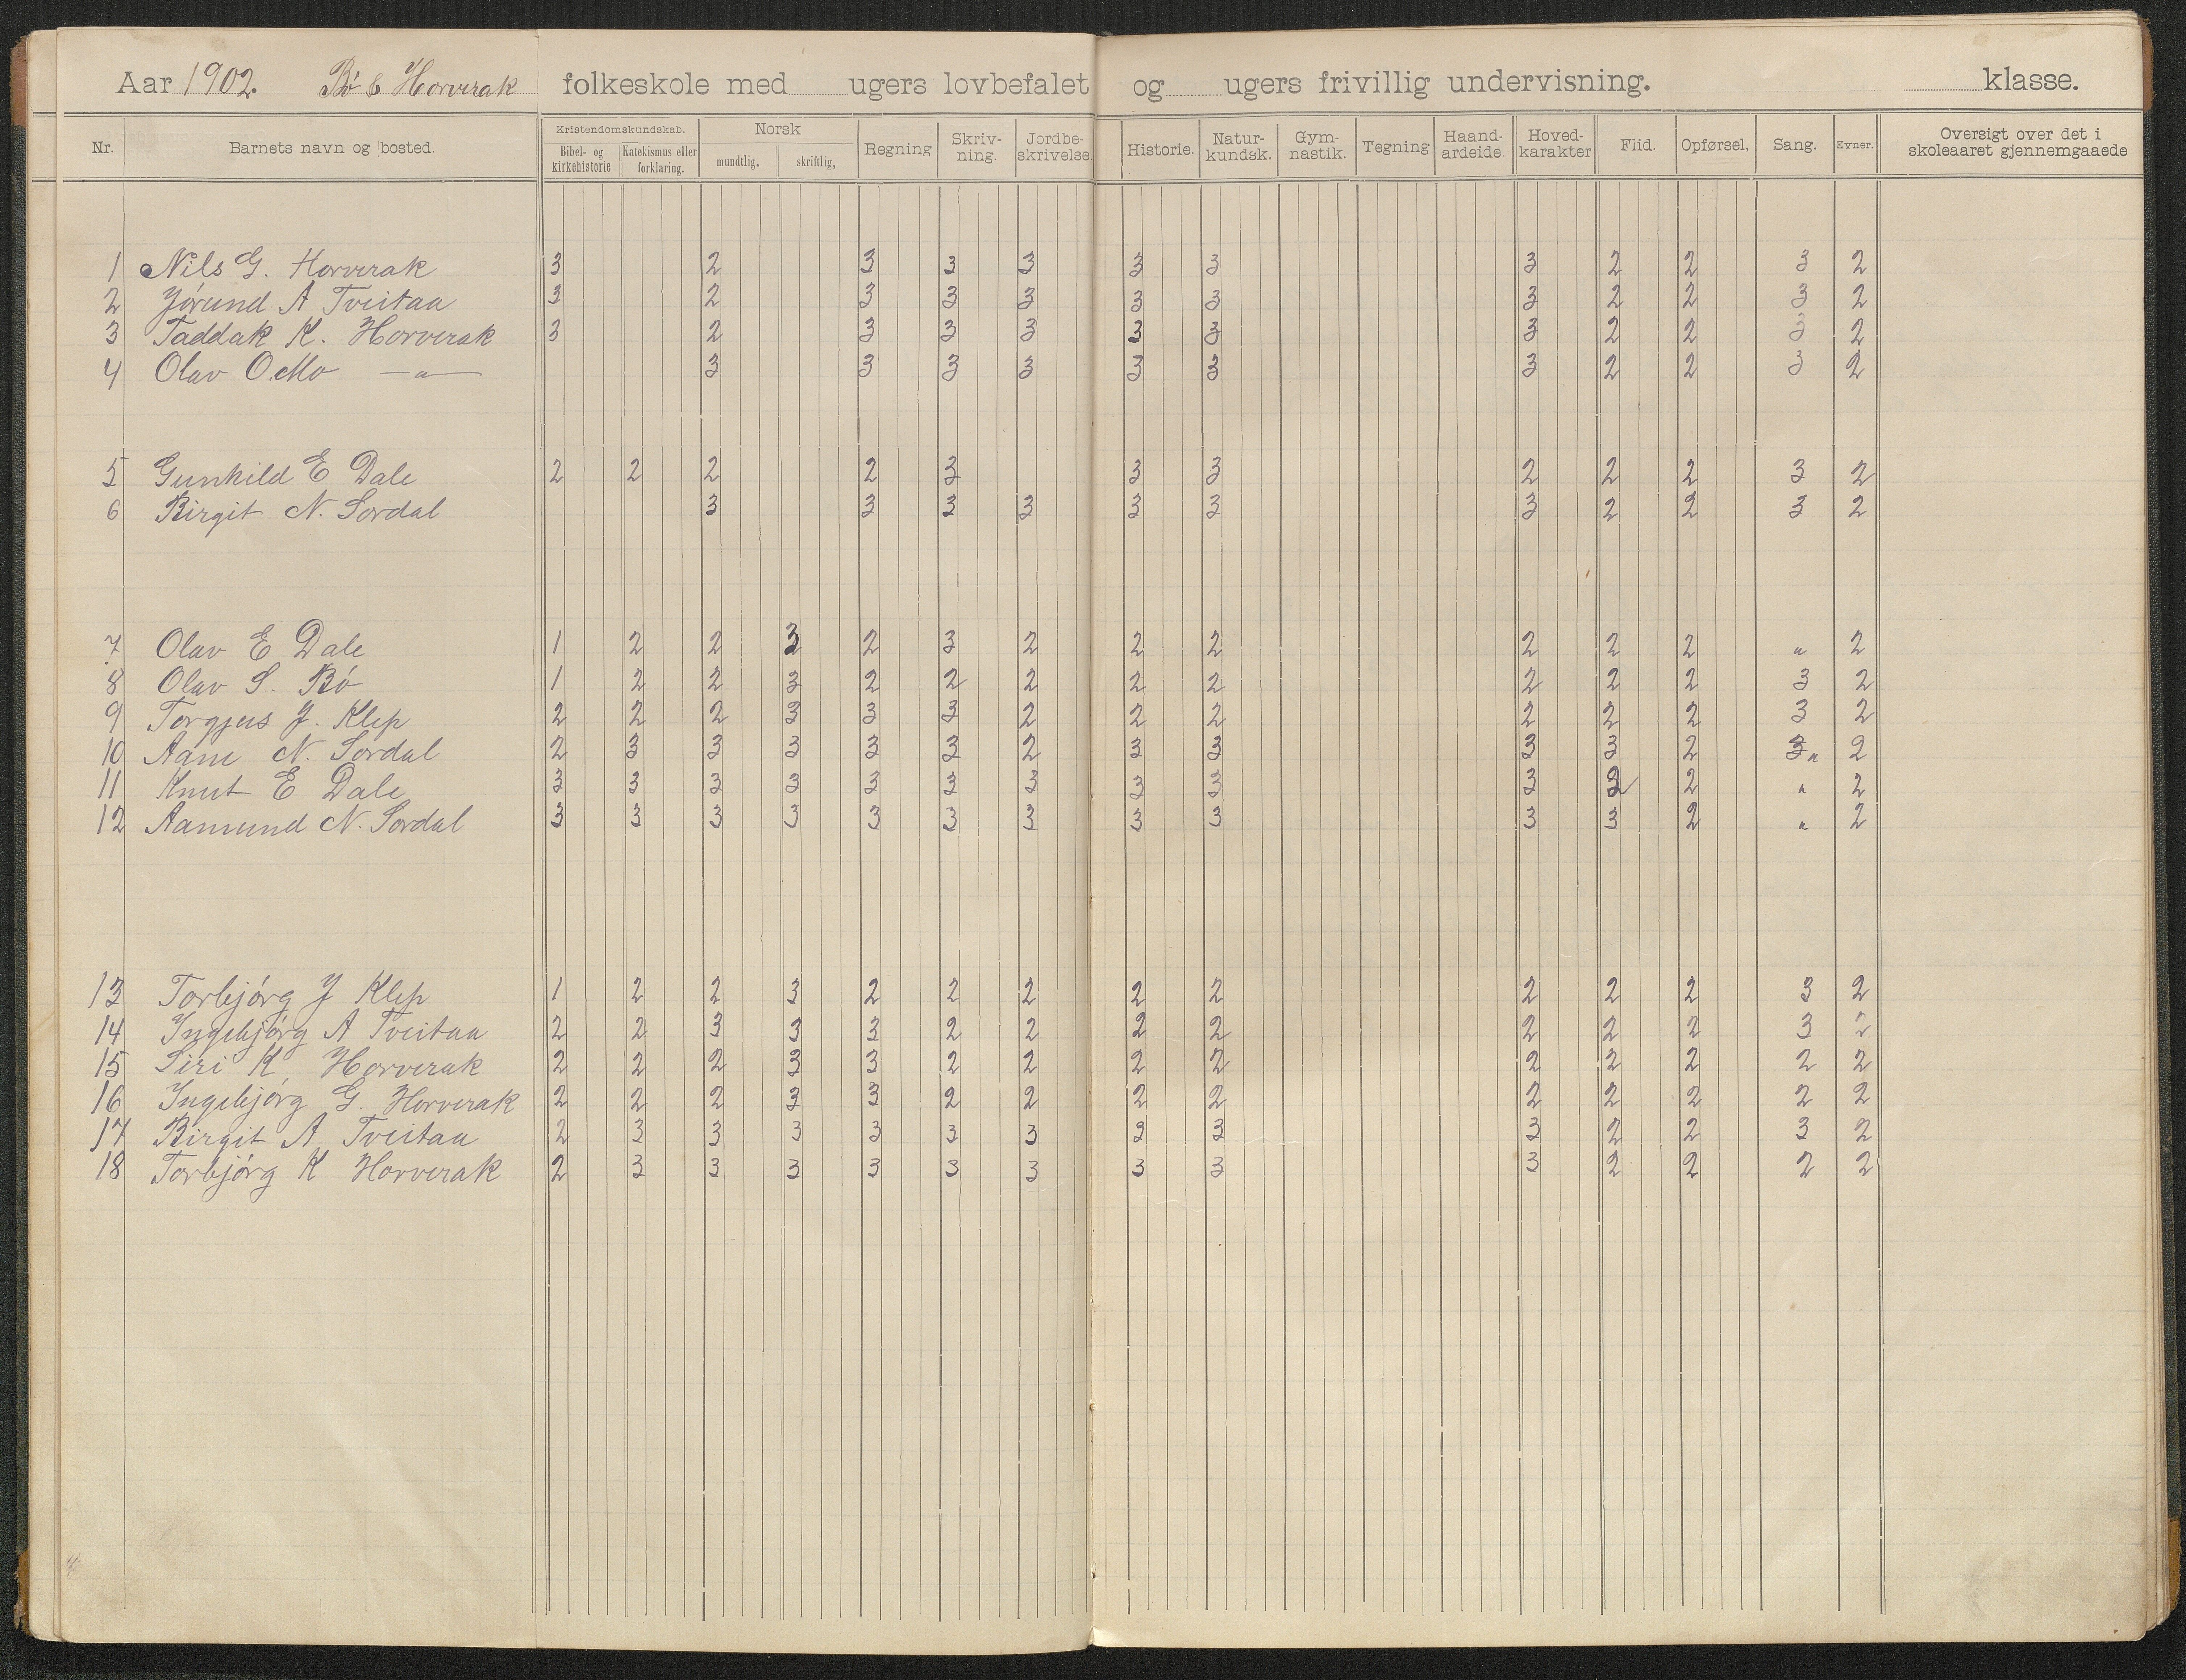 Aar 1902. Bø & Horverak folkeskole med ugers lovbefalet og ugers frivillig undervisning. klasse.
Nr. Barnets navn og bosted. Kristendomskundskab. Norsk Regning Skriv-ning. Jordbe-skrivelse. Historie. Natur-kundsk. Gym-nastik. Tegning Haand-ardeide. Hoved-karakter Flid. Opførsel, Sang. Evner. Oversigt over det i skoleaaret gjennemgaaede
Bibel- og kirkehistorie Katekismus eller forklaring. mundtlig. skriftlig,
1 Nils G. Horverak 3 2 3 3 3 3 3 3 2 2 3 2
2 Jørund A Tveitaa 3 2 3 3 3 3 3 3 2 2 3 2
3 Taddak K. Horverak 3 2 3 3 3 3 3 3 2 2 3 2
4 Olav O. Mo — " — 3 3 3 3 3 3 3 2 2 3 2
5 Gunhild E Dale 2 2 2 2 3 3 3 2 2 2 3 2
6 Birgit N. Sordal 3 3 3 3 3 3 3 2 2 3 2
7 Olav E Dale 1 2 2 3 2 3 2 2 2 2 2 2 " 2
8 Olav S. Bø 1 2 2 3 2 2 2 2 2 2 2 2 3 2
9 Torgjus J. Klep 2 2 2 3 3 3 2 2 2 2 2 2 3 2
10 Aani N. Sordal 2 3 3 3 3 3 2 3 3 3 3 2 3 " 2
11 Knut E Dale 3 3 3 3 3 3 3 3 3 3 2 2 " 2
12 Aamund N. Sordal 3 3 3 3 3 3 3 3 3 3 3 2 " 2
13 Torbjørg J Klep 1 2 2 3 2 2 2 2 2 2 2 2 3 2
14 Ingebjørg A Tveitaa 2 2 3 3 3 2 2 2 2 2 2 2 3 2
15 Siri K. Horverak 2 2 2 3 3 2 2 2 2 2 2 2 2 2
16 Ingebjørg G. Horverak 2 2 2 3 3 2 2 2 2 2 2 2 2 2
17 Birgit A Tveitaa 2 3 3 3 3 3 3 3 3 3 2 2 3 2
18 Torbjørg K Horverak 2 3 3 3 3 3 3 3 3 3 2 2 2 2